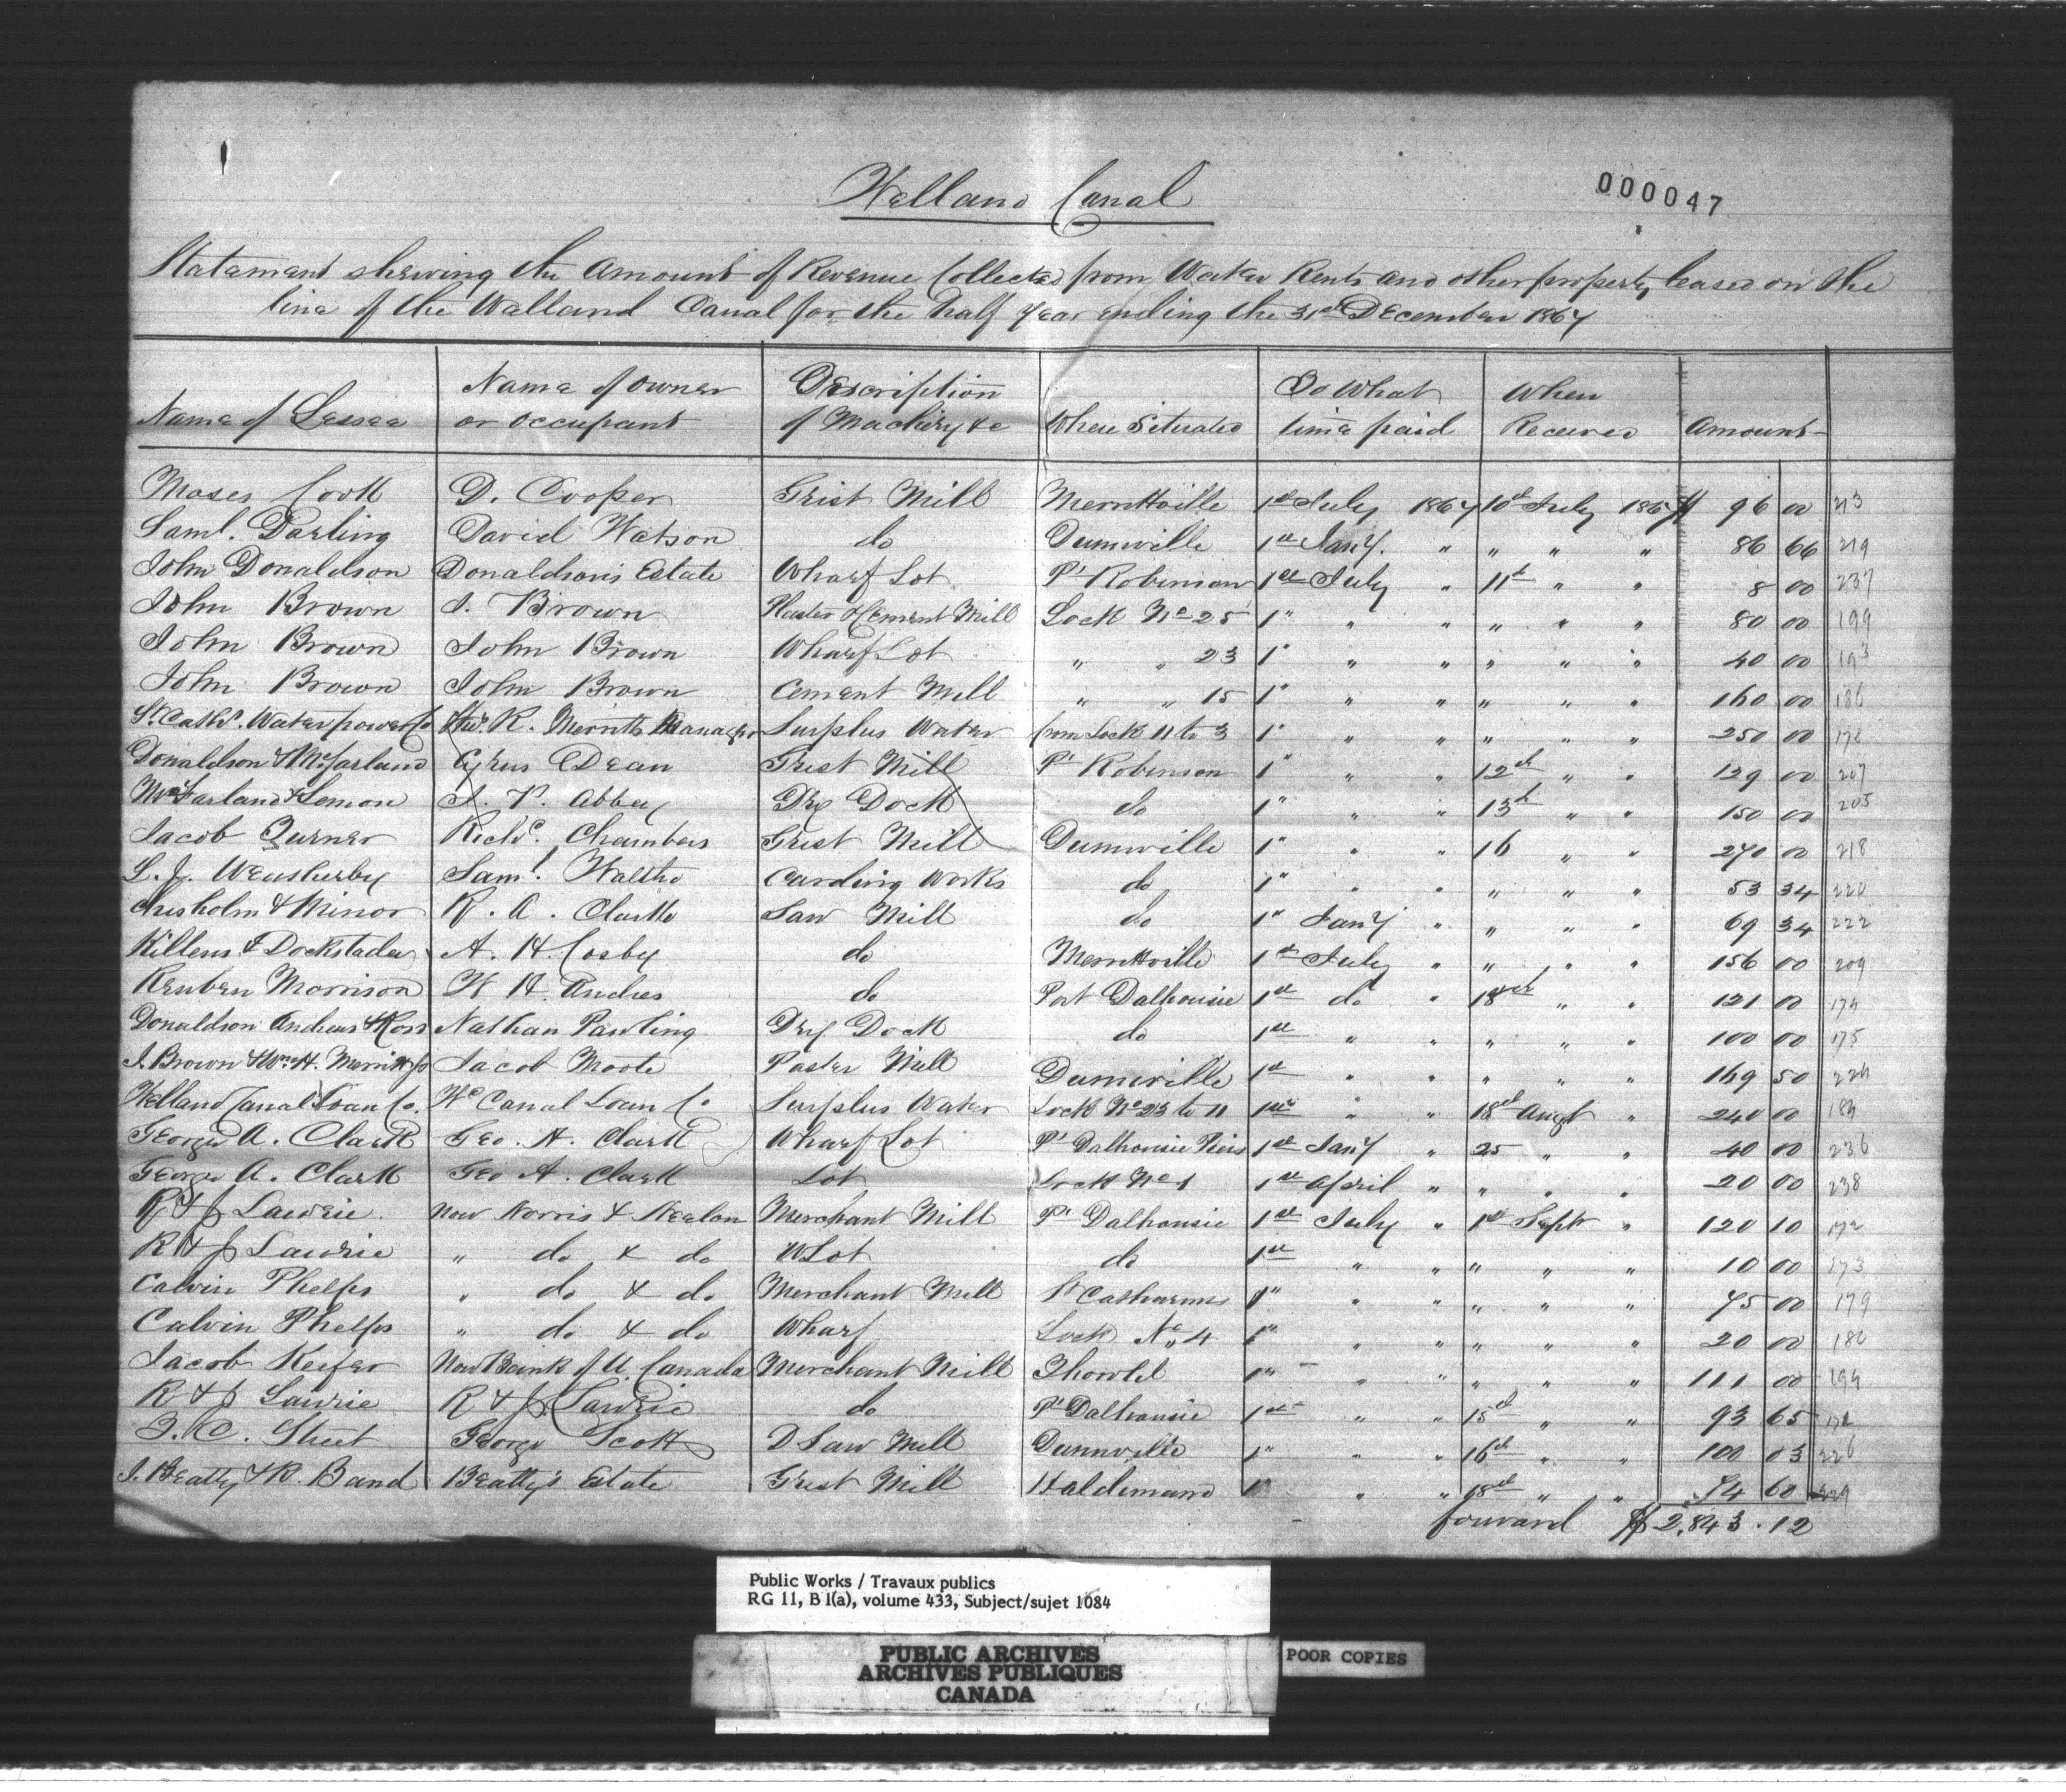 000047
Welland Canal
Statement shewing the Amount of Revenue Collected from Water Rents and other property leased on the
line of the Welland Canal for the half Year ending the 31st December 1867
Name of Lessee | Name of Owner or occupant | Description of Machiny &c | Where Situated | To What time paid | When Received | Amount
Moses Cook | D. Cooper | Grist Mill | Merrittville | 1st July 1867 | 10th July 1867 | $ 96 00 | 213
Saml. Darling | David Watson | do | Dunnville | 1st Jany. " | " " " | 86 66 | 219
John Donaldson | Donaldson's Estate | Wharf Lot | Pt Robinson | 1st July " | 11th " " | 8 00 | 237
John Brown | J. Brown | Plaster & Cement Mill | Lock No 25 | 1" " " | " " " | 80 00 | 199
John Brown | John Brown | Wharf Lot | " " 23 | 1" " " | " " " | 40 00 | 193
John Brown | John Brown | Cement Mill | " " 15 | 1" " " | " " " | 160 00 | 186
St. Caths. Water power Co | Thos. R. Merritt Manager | Surplus Water | from Lock 11 to 3 | 1" " " | " " " | 250 00 | 178
Donaldson & McFarland | Cyrus Dean | Grist Mill | Pt Robinson | 1" " " | 12th " " | 129 00 | 207
McFarland & Lemon | J. P. Abbey | Dry Dock | do | 1" " " | 13th " " | 150 00 | 205
Jacob Turner | Richd. Chambers | Grist Mill | Dunnville | 1" " " | 16 " " | 270 00 | 218
L. J. Weatherby | Saml. Waltho | Carding Works | do | 1" " " | " " " | 53 34 | 220
Chisholm & Minor | R. A. Clarke | Saw Mill | do | 1" Jany " | " " " | 69 34 | 222
Killens & Dockstader | A. H. Cosby | do | Merrittville | 1st July " | " " " | 156 00 | 209
Reuben Morrison | W H. Andres | do | Port Dalhousie | 1st do " | 18th " " | 121 00 | 174
Donaldson Andrews & Ross | Nathan Pawling | Dry Dock | do | 1st " " | " " " | 100 00 | 175
J. Brown & Wm. H. Merritt Jr | Jacob Moote | Paster Mill | Dunnville | 1st " " | " " " | 169 50 | 224
Welland Canal Loan Co. | Wd Canal Loan Co | Surplus Water | Lock No 23 to 11 | 1st " " | 18th Augt " | 240 00 | 184
George A. Clark | Geo. A. Clark | Wharf Lot | Pt Dalhousie Piers | 1st Jany " | 25 " " | 40 00 | 236
George A. Clark | Geo A. Clark | Lot | Lock No 1 | 1st April " | " " " | 20 00 | 238
R & J Lawrie | Now Norris & Neelon | Merchant Mill | Pt Dalhousie | 1st July " | 1st Sept " | 120 10 | 172
R & J Lawrie | " do & do | W Lot | do | 1st " " | " " " | 10 00 | 173
Calvin Phelps | " do & do | Merchant Mill | St Catharines | 1" " " | " " " | 75 00 | 179
Calvin Phelps | " do & do | Wharf | Lock No. 4 | 1" " " | " " " | 20 00 | 180
Jacob Keefer | Now Bank of U. Canada | Merchant Mill | Thorold | 1" " " | " " " | 111 00 | 194
R & J Lawrie | R & J. Lawrie | do | Pt Dalhousie | 1st " " | 15th " " | 93 65 | 172
T. C. Street | George Scott | D Saw Mill | Dunnville | 1" " " | 16th " " | 100 03 | 226
J. Beatty & R. Band | Beatty's Estate | Grist Mill | Haldimand | 1" " " | 18th " " | 74 60 | 229
forward $ 2,843.12
Public Works / Travaux publics
RG 11, B 1(a), volume 433, Subject/sujet 1084
PUBLIC ARCHIVES
ARCHIVES PUBLIQUES
CANADA
POOR COPIES